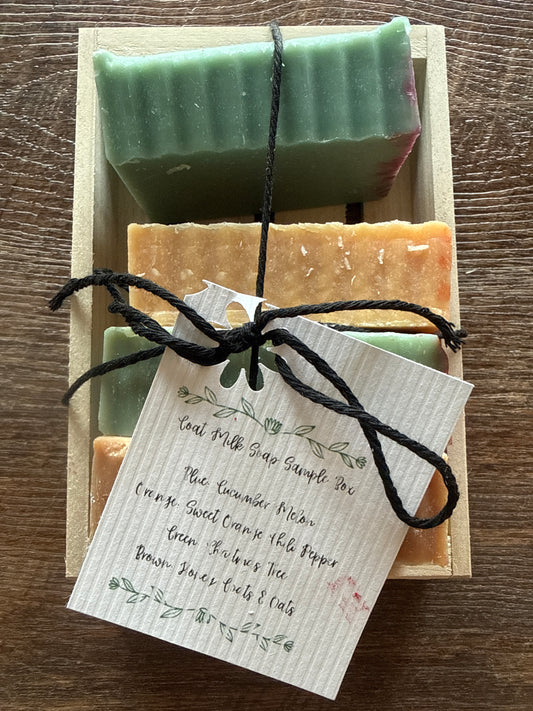 Goat Milk Soap Sample Box
Blue: Cucumber Melon
Orange: Sweet Orange Chili Pepper
Green: Christmas Tree
Brown: Honey Goats & Oats